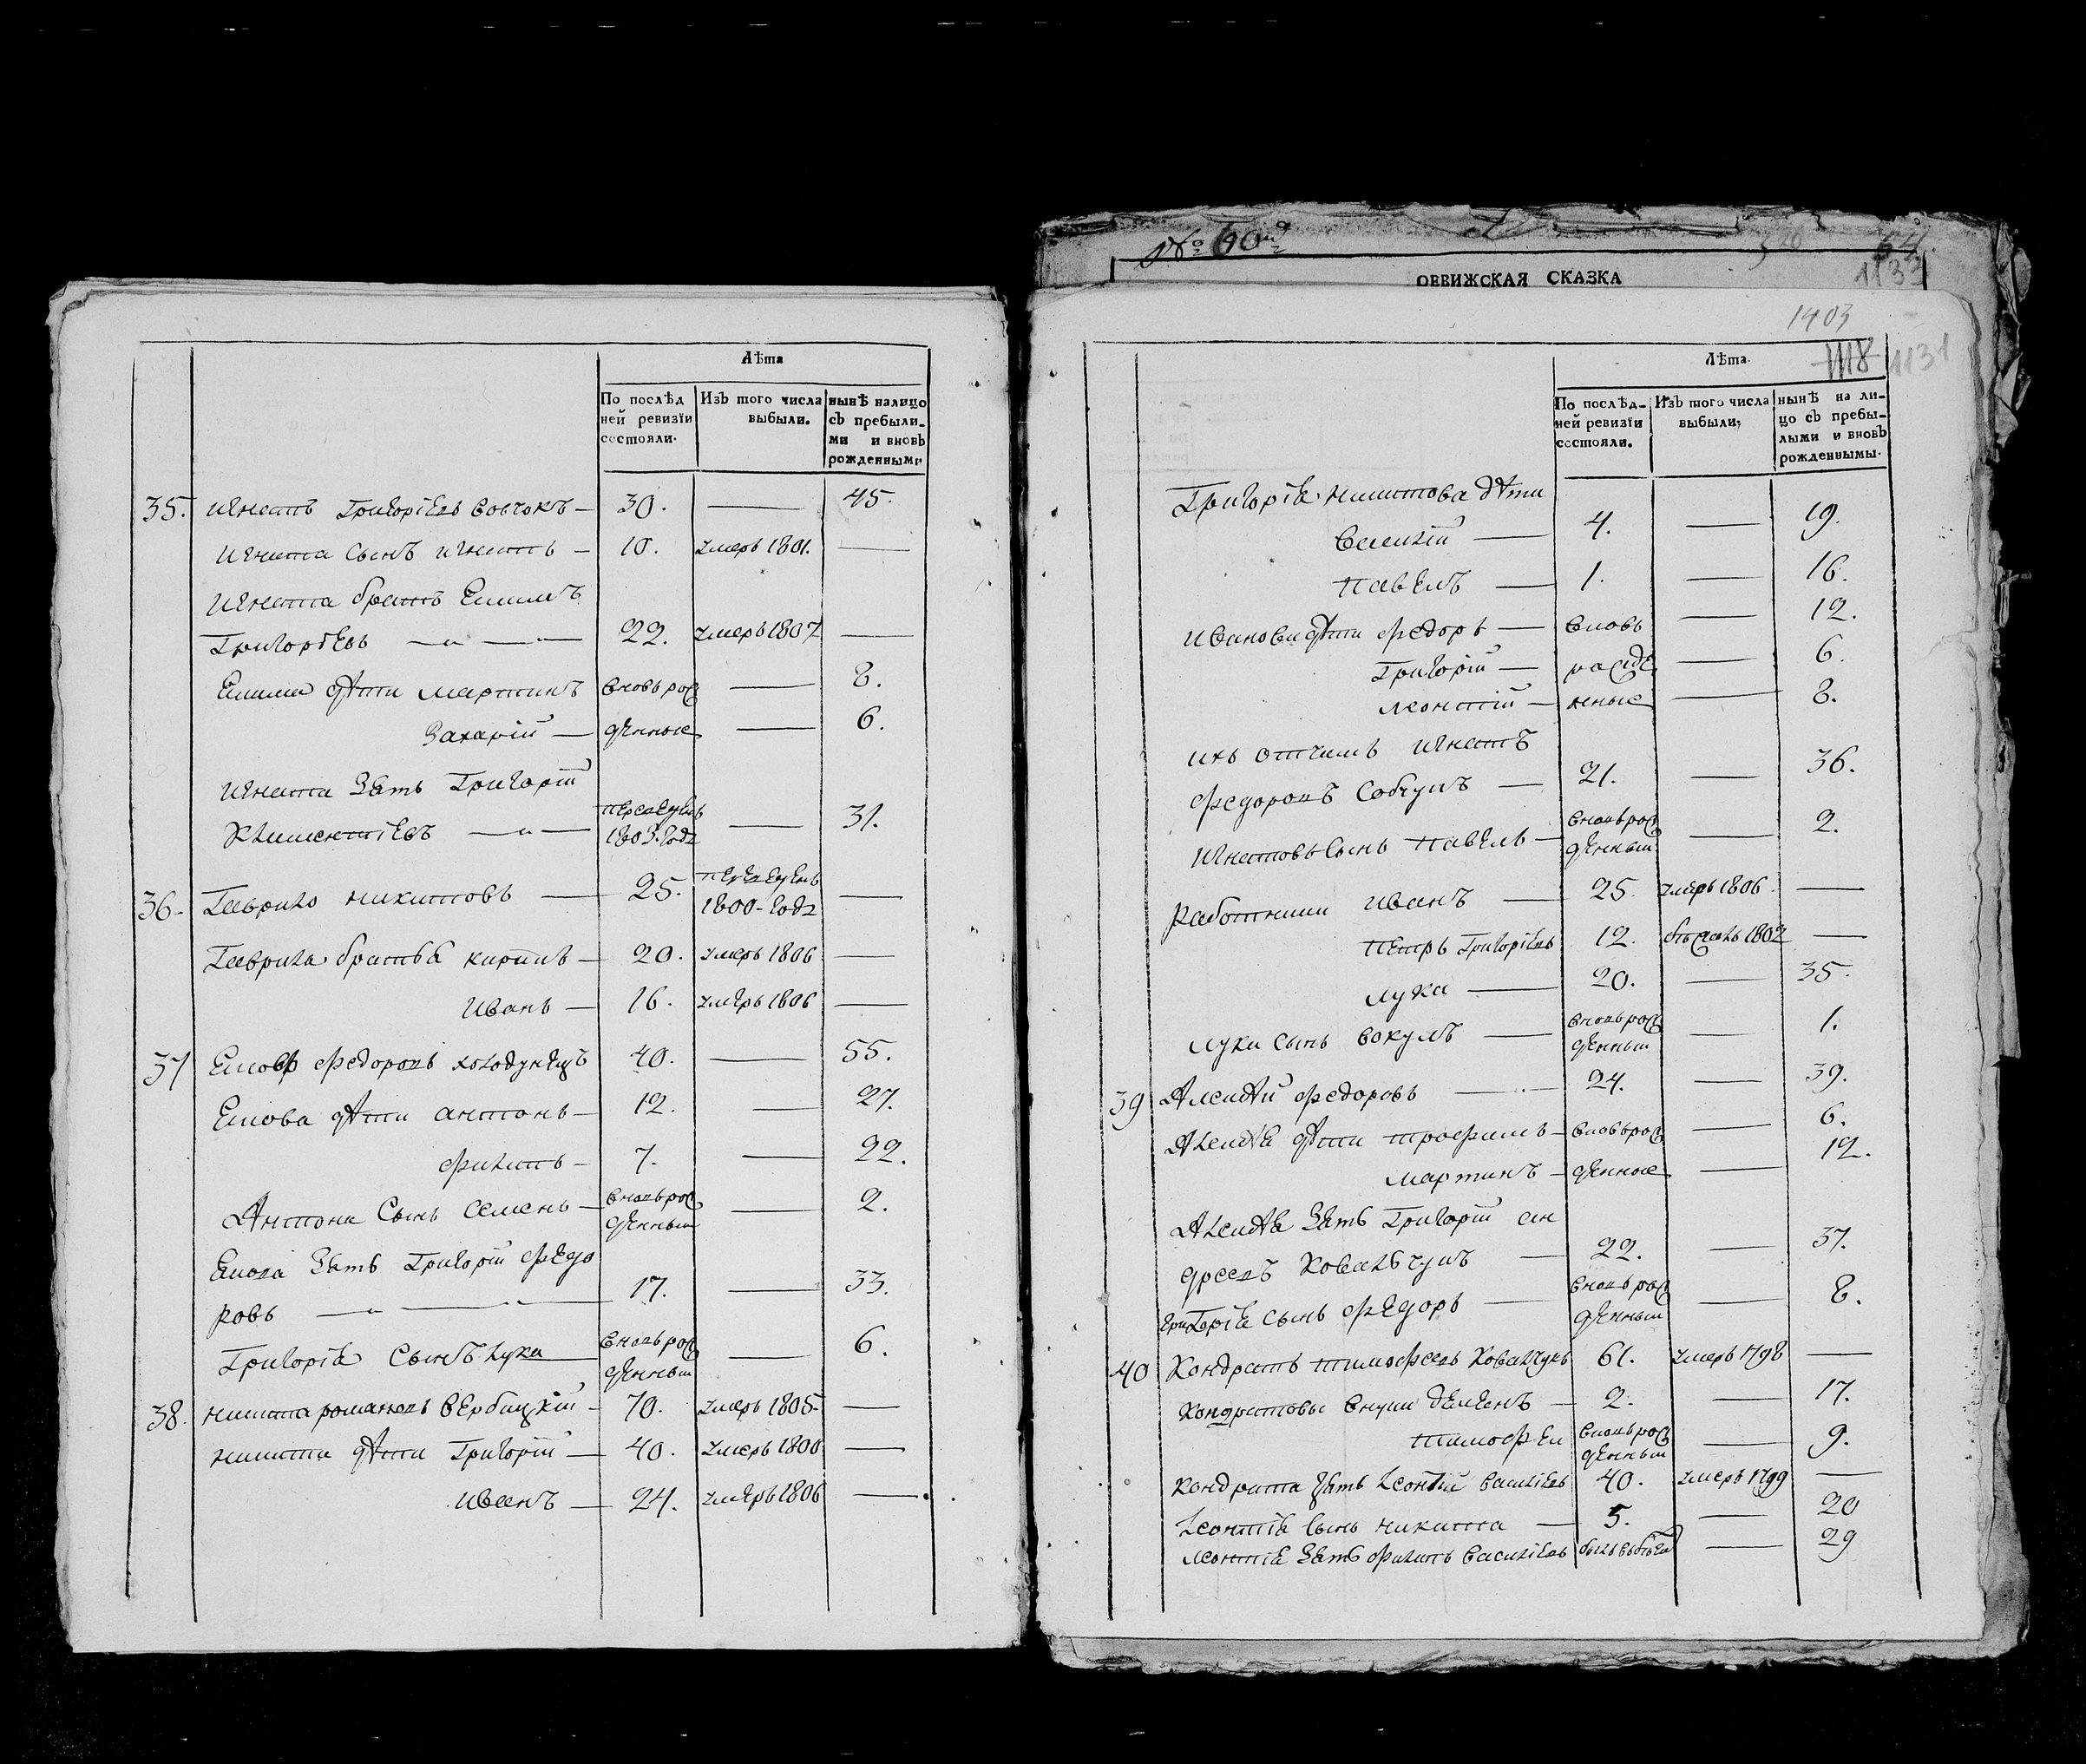 Лѣта
По послѣд
ней ревизїи
состояли.
Изъ того числа
выбыли.
нынѣ налицо
съ пребыли-
ми и вновь
рожденными
35. Игнатъ Григорїевъ Вовчокъ — 30. — 45.
Игната сынъ Игнатъ — 10. умеръ 1801. —
Игната братъ Екимъ
Григорїевъ — 22. умеръ 1807 —
Екима дѣти Мартинъ вновь рож — 8.
Захарїй — денные — 6.
Игната зять Григорїй
Климентїевъ — 1803. года — 31.
36. Гаврило Никитовъ — 25. 1800 года —
Гаврила братья Кирилъ — 20. умеръ 1806 —
Иванъ — 16. умеръ 1806 —
37 Федоровъ Холодунецъ 40. — 55.
дѣти Антонъ — 12. — 27.
Филипъ — 7. — 22.
Антона сынъ Семенъ — вновь рож
денный — 2.
зять Григорїй Федо
ровъ — 17. — 33.
Григорїя сынъ Лука вновь рож
денный — 6.
38. Никита Романовъ Вербицкїй — 70. умеръ 1805 —
Никита дѣти Григорїй — 40. умеръ 1800 —
Иванъ — 24. умеръ 1806 —
№ 60й
ОРВИЖСКАЯ СКАЗКА
1133
1403
1131
Лѣта
По послѣд-
ней ревизїи
состояли.
Изъ того числа
выбыли,
нынѣ на ли-
цо съ пребы-
лыми и вновь
рожденными.
Григорїя Никитова дѣти
Василїй — 4. — 19.
Павелъ — 1. — 16.
Ивановы дѣти Федоръ — вновь — 12.
Григорїй — рожде — 6.
Леонтїй — нные — 8.
ихъ отчимъ Игнатъ
Федоровъ — 21. — 36.
Игнатовъ сынъ Павелъ — вновь рож
денный — 2.
Работники Иванъ — 25. умеръ 1806. —
Петръ Григорїевъ 12. бѣжалъ 1802 —
Лука — 20. — 35.
Луки сынъ Вокулъ — вновь рож
денный — 1.
39 Алексѣй Федоровъ — 24. — 39.
Алексѣя дѣти Трофимъ — вновь рож — 6.
Мартинъ — денные — 12.
Алексѣя зять Григорїй Ан
дреевъ Ковальчукъ — 22. — 37.
Григорїя сынъ Федоръ — вновь рож
денный — 8.
40 Кондратъ Тимофеевъ Ковалчукъ 61. умеръ 1798 —
Кондратовы внуки Демьенъ — 2. — 17.
Тимофей вновь рож
денный — 9.
Кондрата зять Леонтїй Василїевъ 40. умеръ 1799 —
Леонтїя сынъ Никита — 5. — 20
Леонтїя зять Филипъ Василїевъ — 29